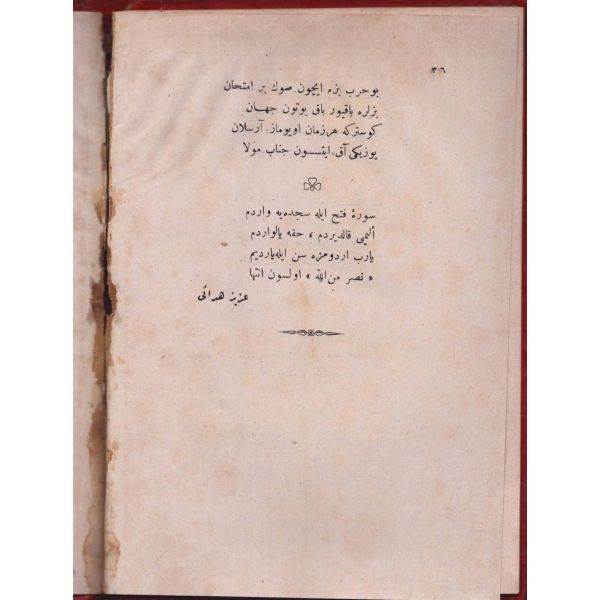 ٣٠٦
بو حرب بزم ایچون صوك بر امتحان
بزلره باقیور باق بوتون جهان
کوسترکه هر زمان اویوماز، آرسلان
یوزیکی آق، ایتسون جناب مولا
سورۀ فتح ایله سجدەیه واردم
ألیمی قالدیردم، حقه یالواردم
یارب اردومزه سن ایله یاردیم
« نصر من الله » اولسون انتها
عزیز هدائی